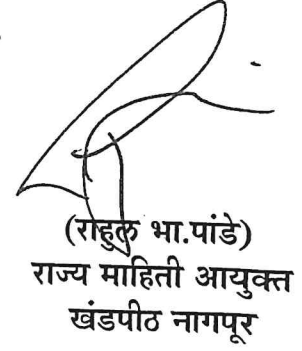 (राहुल भा.पांडे)
राज्य माहिती आयुक्त
खंडपीठ नागपूर